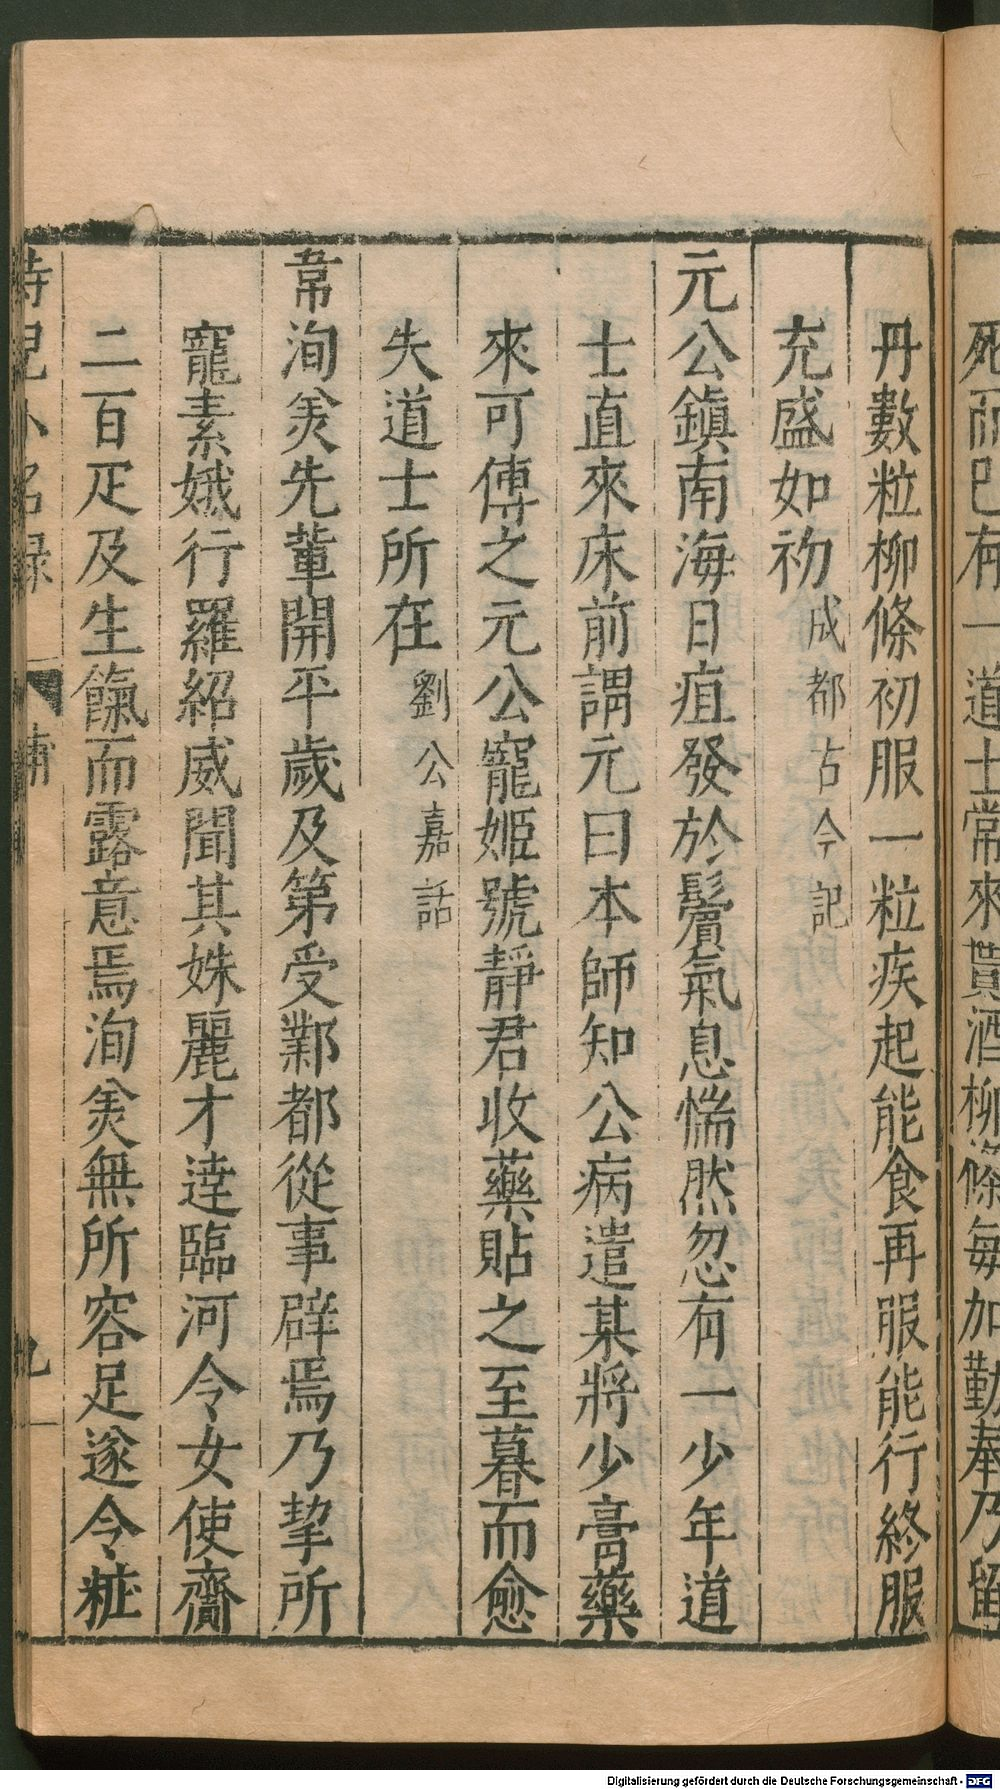 死而已有一道士常來貰酒柳條每加勤奉乃留
丹數粒柳條初服一粒疾起能食再服能行終服
充盛如初成都古今記
元公鎮南海日疽發於鬢氣息惴然忽有一少年道
士直來床前謂元曰本師知公病遣某將少膏藥
來可傅之元公寵姬號靜君收藥貼之至暮而愈
失道士所在劉公嘉話
韋洵美先輩開平歲及第受鄴都從事辟焉乃挈所
寵素娥行羅紹威聞其姝麗才達臨河令女使齎
二百疋及生餼而露意焉洵美無所容足遂令粧
侍兒小名録 補 九
Digitalisierung gefördert durch die Deutsche Forschungsgemeinschaft - DFG